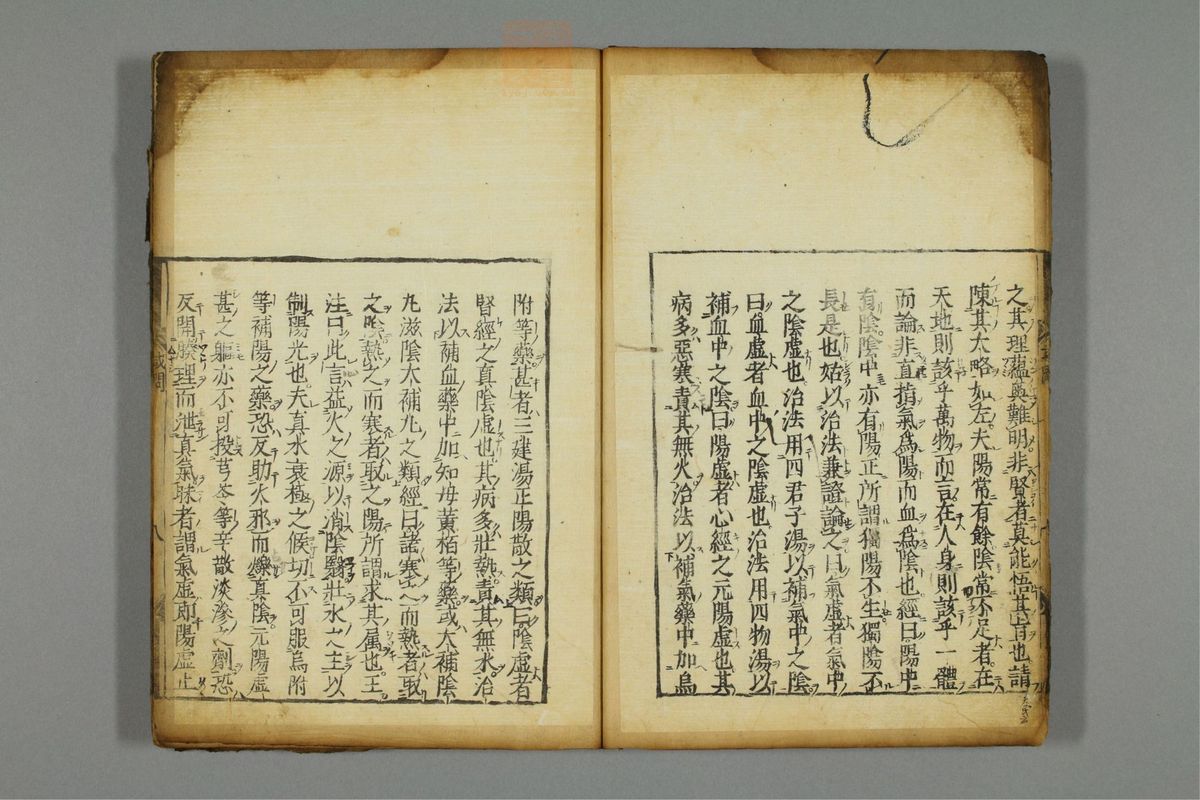 之其理蘊奧難明非賢者莫能悟其旨也請
陳其大略如左夫陽常有餘陰常不足者在
天地則該乎萬物而言在人身則該乎一體
而論非直指氣爲陽而血爲陰也經曰陽中
有陰陰中亦有陽正所謂獨陽不生獨陰不
長是也姑以治法兼證論之曰氣虛者氣中
之陰虛也治法用四君子湯以補氣中之陰
曰血虛者血中之陰虛也治法用四物湯以
補血中之陰曰陽虛者心經之元陽虛也其
病多惡寒責其無火治法以補氣藥中加烏
附等藥甚者三建湯正陽散之類曰陰虛者
腎經之真陰虛也其病多壯熱責其無水治
法以補血藥中加知母黃栢等藥或大補陰
丸滋陰大補丸之類經曰諸寒之而熱者取
之陰熱之而寒者取之陽所謂求其属也王
注曰此言益火之源以消陰翳壯水之主以
制陽光也夫真水衰極之候切不可服烏附
等補陽之藥恐反助火邪而爍真陰元陽虛
甚之軀亦不可投芎苓等辛散淡滲之劑恐
反開腠理而泄真氣昧者謂氣虛即陽虛止
或問